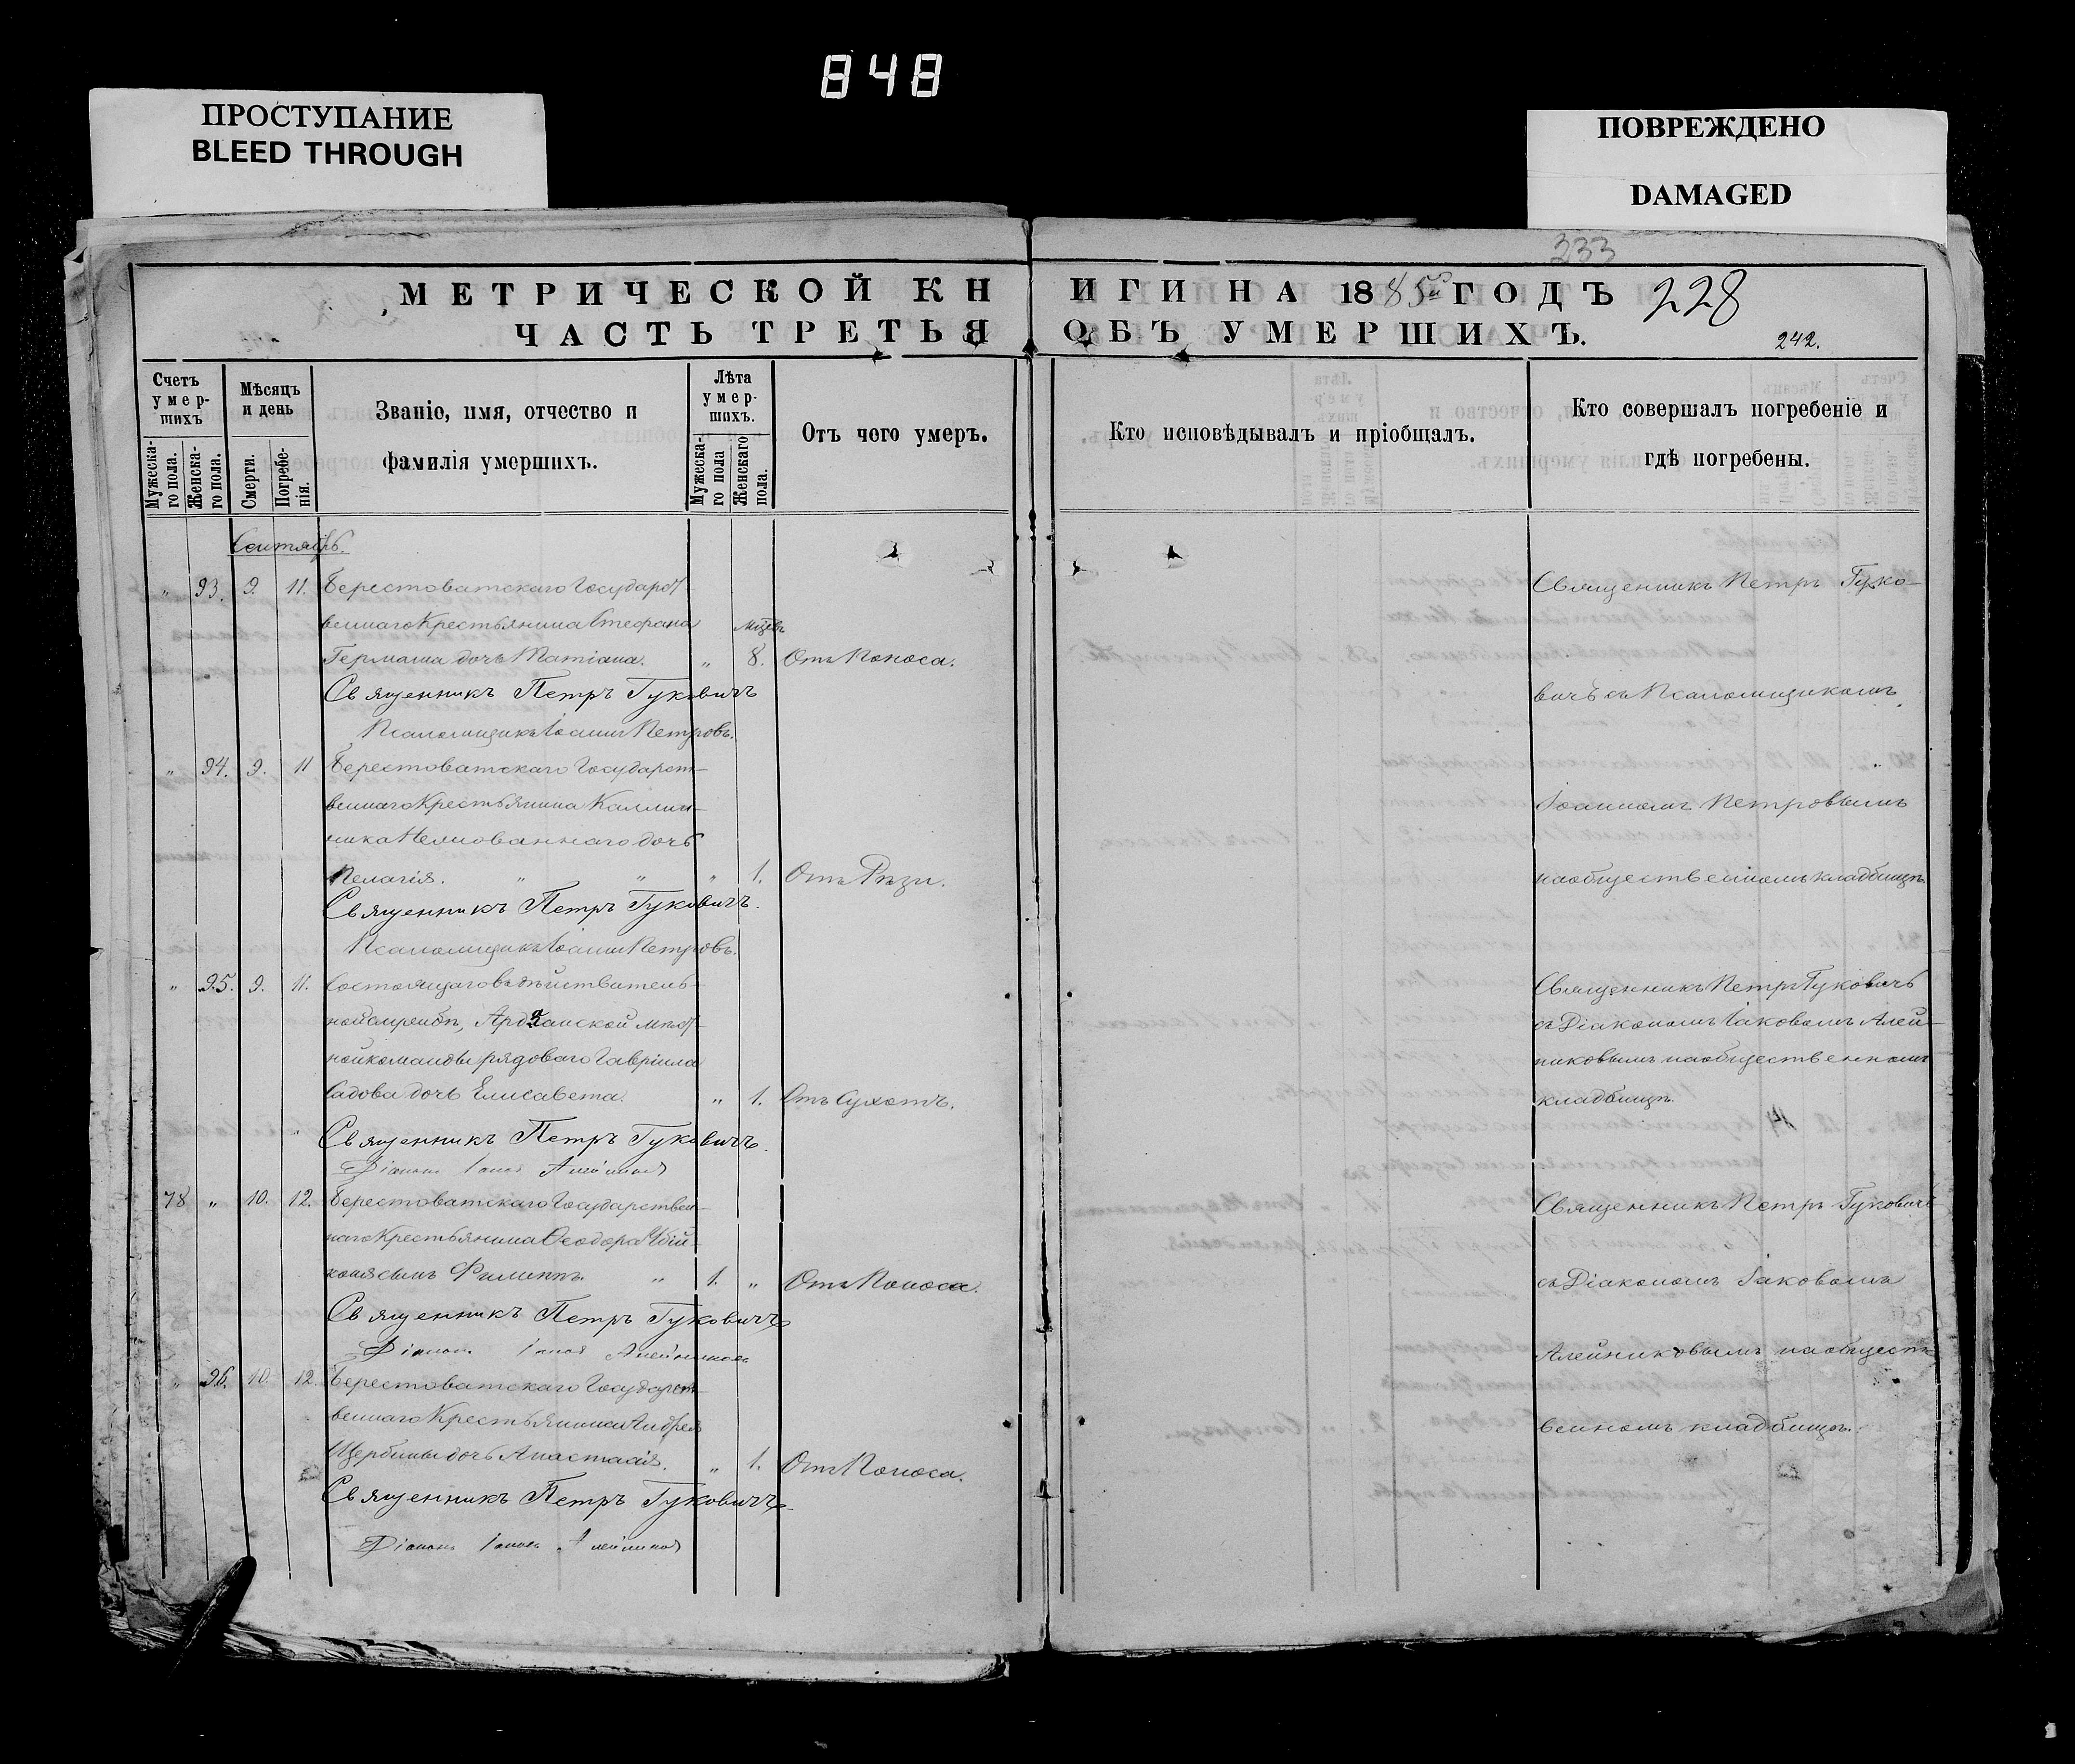 848
ПРОСТУПАНИЕ
BLEED THROUGH
ПОВРЕЖДЕНО
DAMAGED
333
МЕТРИЧЕСКОЙ КНИГИ НА 1885й ГОДЪ
228
ЧАСТЬ ТРЕТЬЯ ОБЪ УМЕРШИХЪ.
242.
Счетъ умер-шихъ
Мужеска-го пола.
Женска-го пола.
Мѣсяцъ и день
Смерти.
Погребе-нія.
Званіе, имя, отчество и
фамилія умершихъ.
Лѣта умер-шихъ.
Мужеска-го пола
Женскаго пола.
Отъ чего умеръ.
Кто исповѣдывалъ и пріобщалъ.
Кто совершалъ погребеніе и
гдѣ погребены.
Сентябрь.
" 93. 9. 11. Берестоватскаго Государст-
веннаго Крестьянина Стефана
Мѣсяцъ
Германа дочь Татіана. " 8. Отъ Поноса.
Священникъ Петръ Гуковичъ
Псаломщикъ Іоаннъ Петровъ.
Священникъ Петръ Гуко-
вичъ съ Псаломщикомъ
" 94. 9. 11 Берестоватскаго Государст-
веннаго Крестьянина Каллин-
ника дочь
Пелагія. " " " 1. Отъ Рѣзи.
Священникъ Петръ Гуковичъ.
Псаломщикъ Іоаннъ Петровъ.
Іоанномъ Петровымъ
на общественномъ кладбищѣ.
" 95. 9. 11. Состоящаго въ дѣйствитель-
ной службѣ, Ардаганской мѣст-
ной команды рядоваго Гавріила
Садова дочь Елисавета. " 1. Отъ Сухотъ.
Священникъ Петръ Гуковичъ.
Діаконъ Іаковъ Алейниковъ
Священникъ Петръ Гуковичъ
съ Діакономъ Іаковомъ Алей-
никовымъ на общественномъ
кладбищѣ.
78 " 10. 12. Берестоватскаго Государствен-
наго Крестьянина Ѳеодора
сынъ Филиппъ. " 1. " Отъ Поноса.
Священникъ Петръ Гуковичъ
Діаконъ Іаковъ Алейниковъ
" 96. 10. 12. Берестоватскаго Государст-
веннаго Крестьянина Андрея
Щербины дочь Анастасія. " 1. Отъ Поноса.
Священникъ Петръ Гуковичъ
Діаконъ Іаковъ Алейниковъ
Священникъ Петръ Гуковичъ
съ Діакономъ Іаковомъ
Алейниковымъ на общест-
венномъ кладбищѣ.